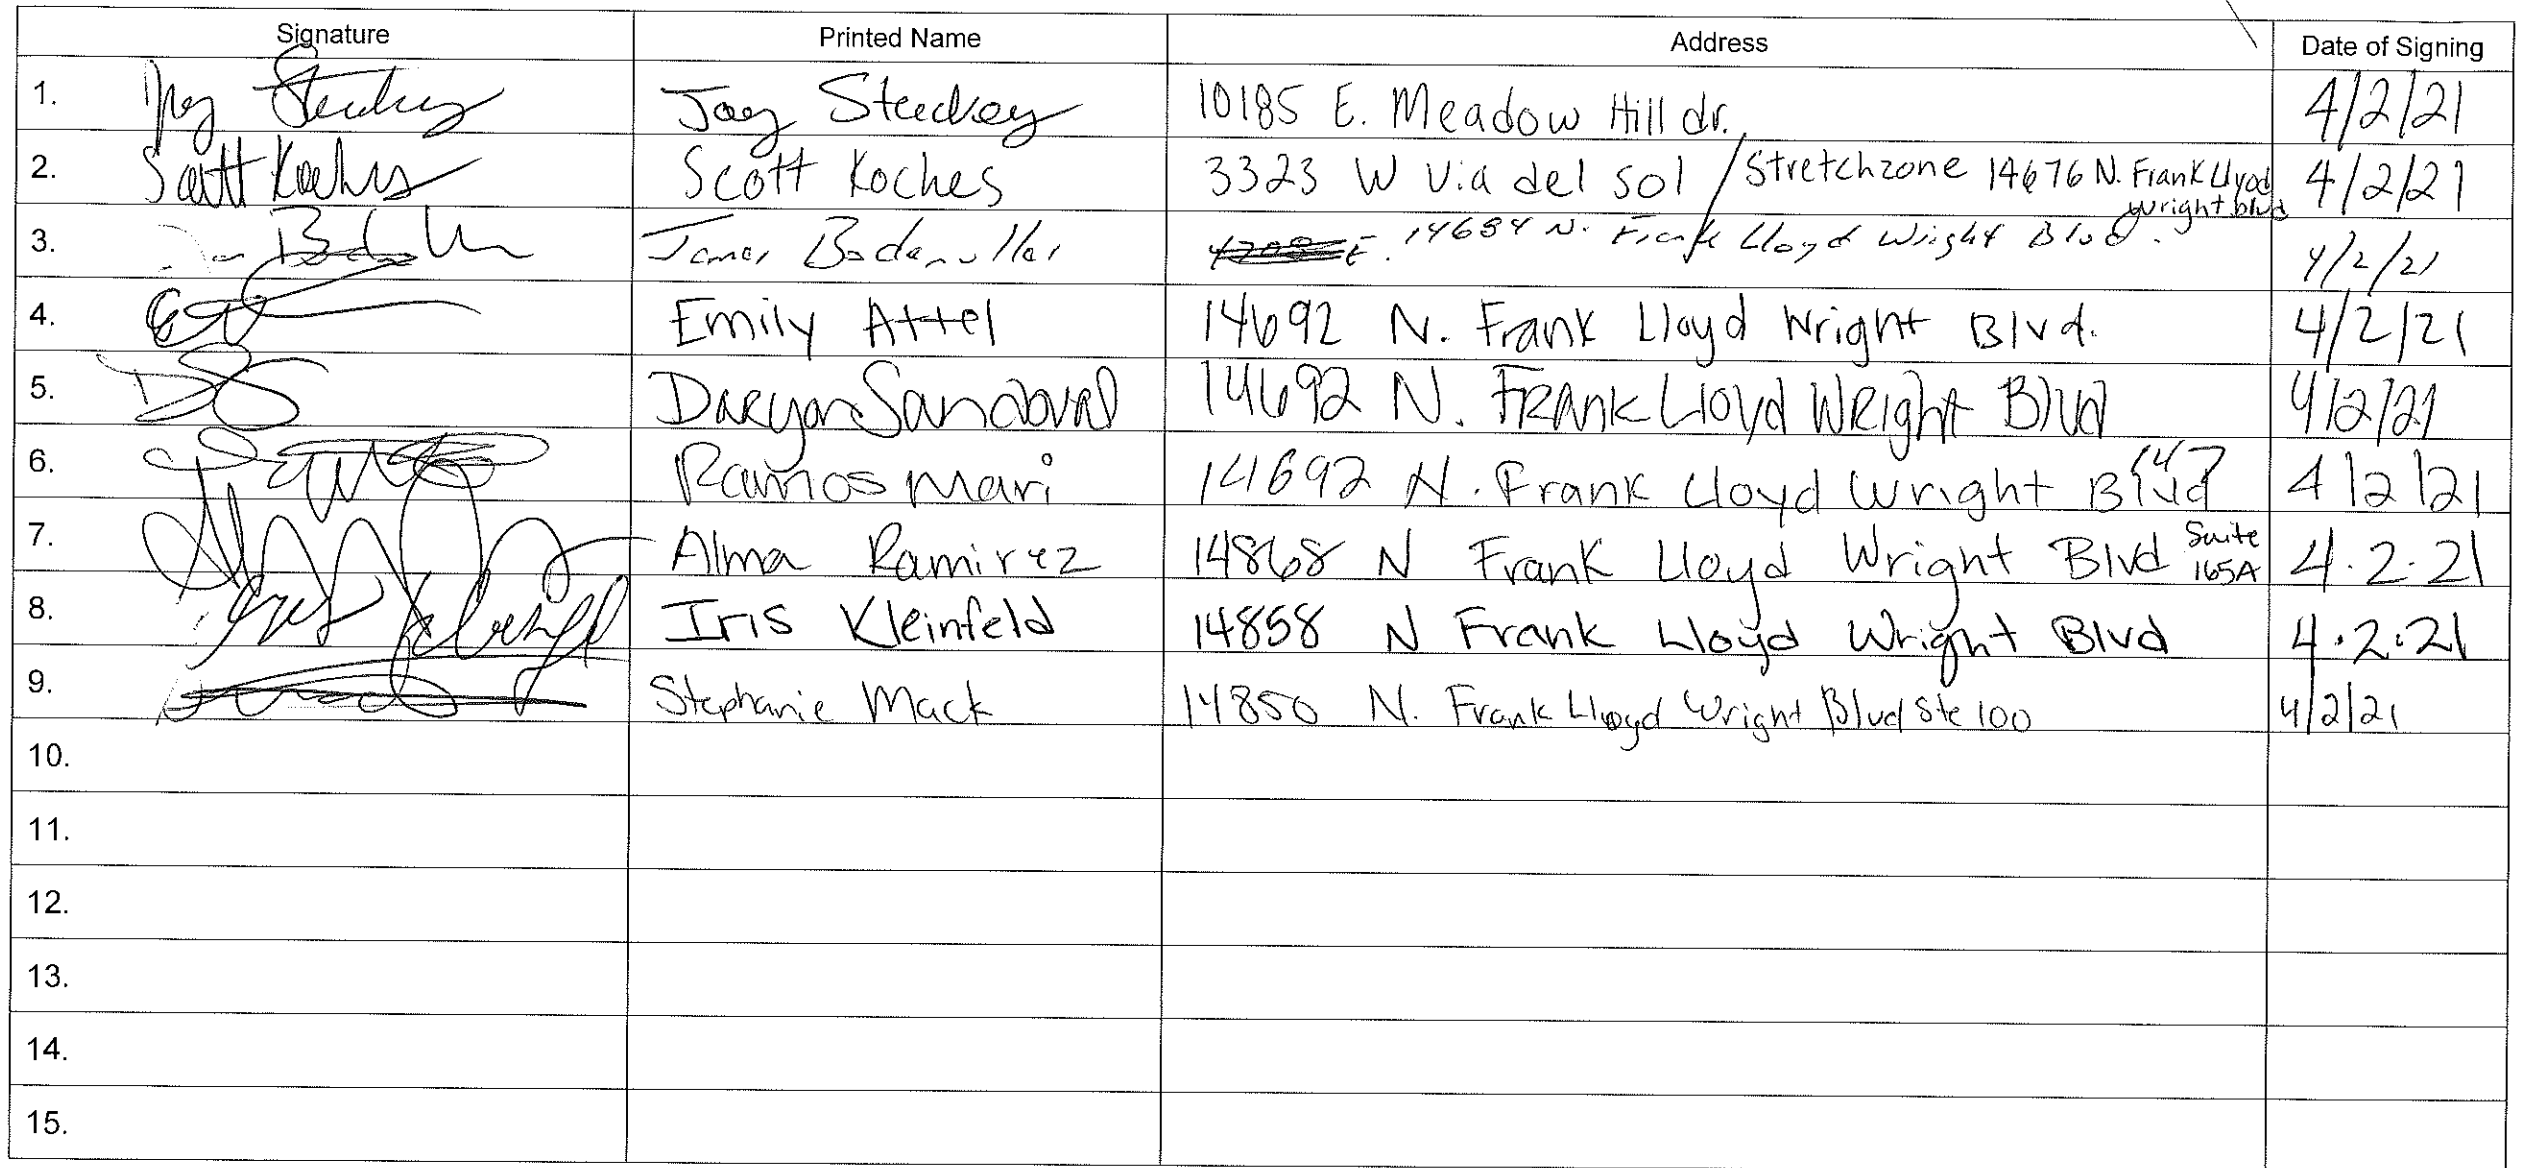 Signature Printed Name Address Date of Signing
1. Joey Steckey 10185 E. Meadow Hill dr. 4/2/21
2. Scott Koches Scott Koches 3323 W Via del sol / Stretchzone 14676 N. Frank Llyod Wright blvd 4/2/21
3. James 14684 N. Frank Lloyd Wright Blvd. 4/2/21
4. Emily Attel 14692 N. Frank Lloyd Wright Blvd. 4/2/21
5. DS Daryon Sandoval 14692 N. Frank Lloyd Wright Blvd 4/2/21
6. Ramos Mari 14692 N. Frank Lloyd Wright Blvd 147 4/2/21
7. Alma Ramirez 14868 N Frank Lloyd Wright Blvd Suite 165A 4.2.21
8. Iris Kleinfeld 14858 N Frank Lloyd Wright Blvd 4.2.21
9. Stephanie Mack 14850 N. Frank Lloyd Wright Blvd Ste 100 4/2/21
10.
11.
12.
13.
14.
15.